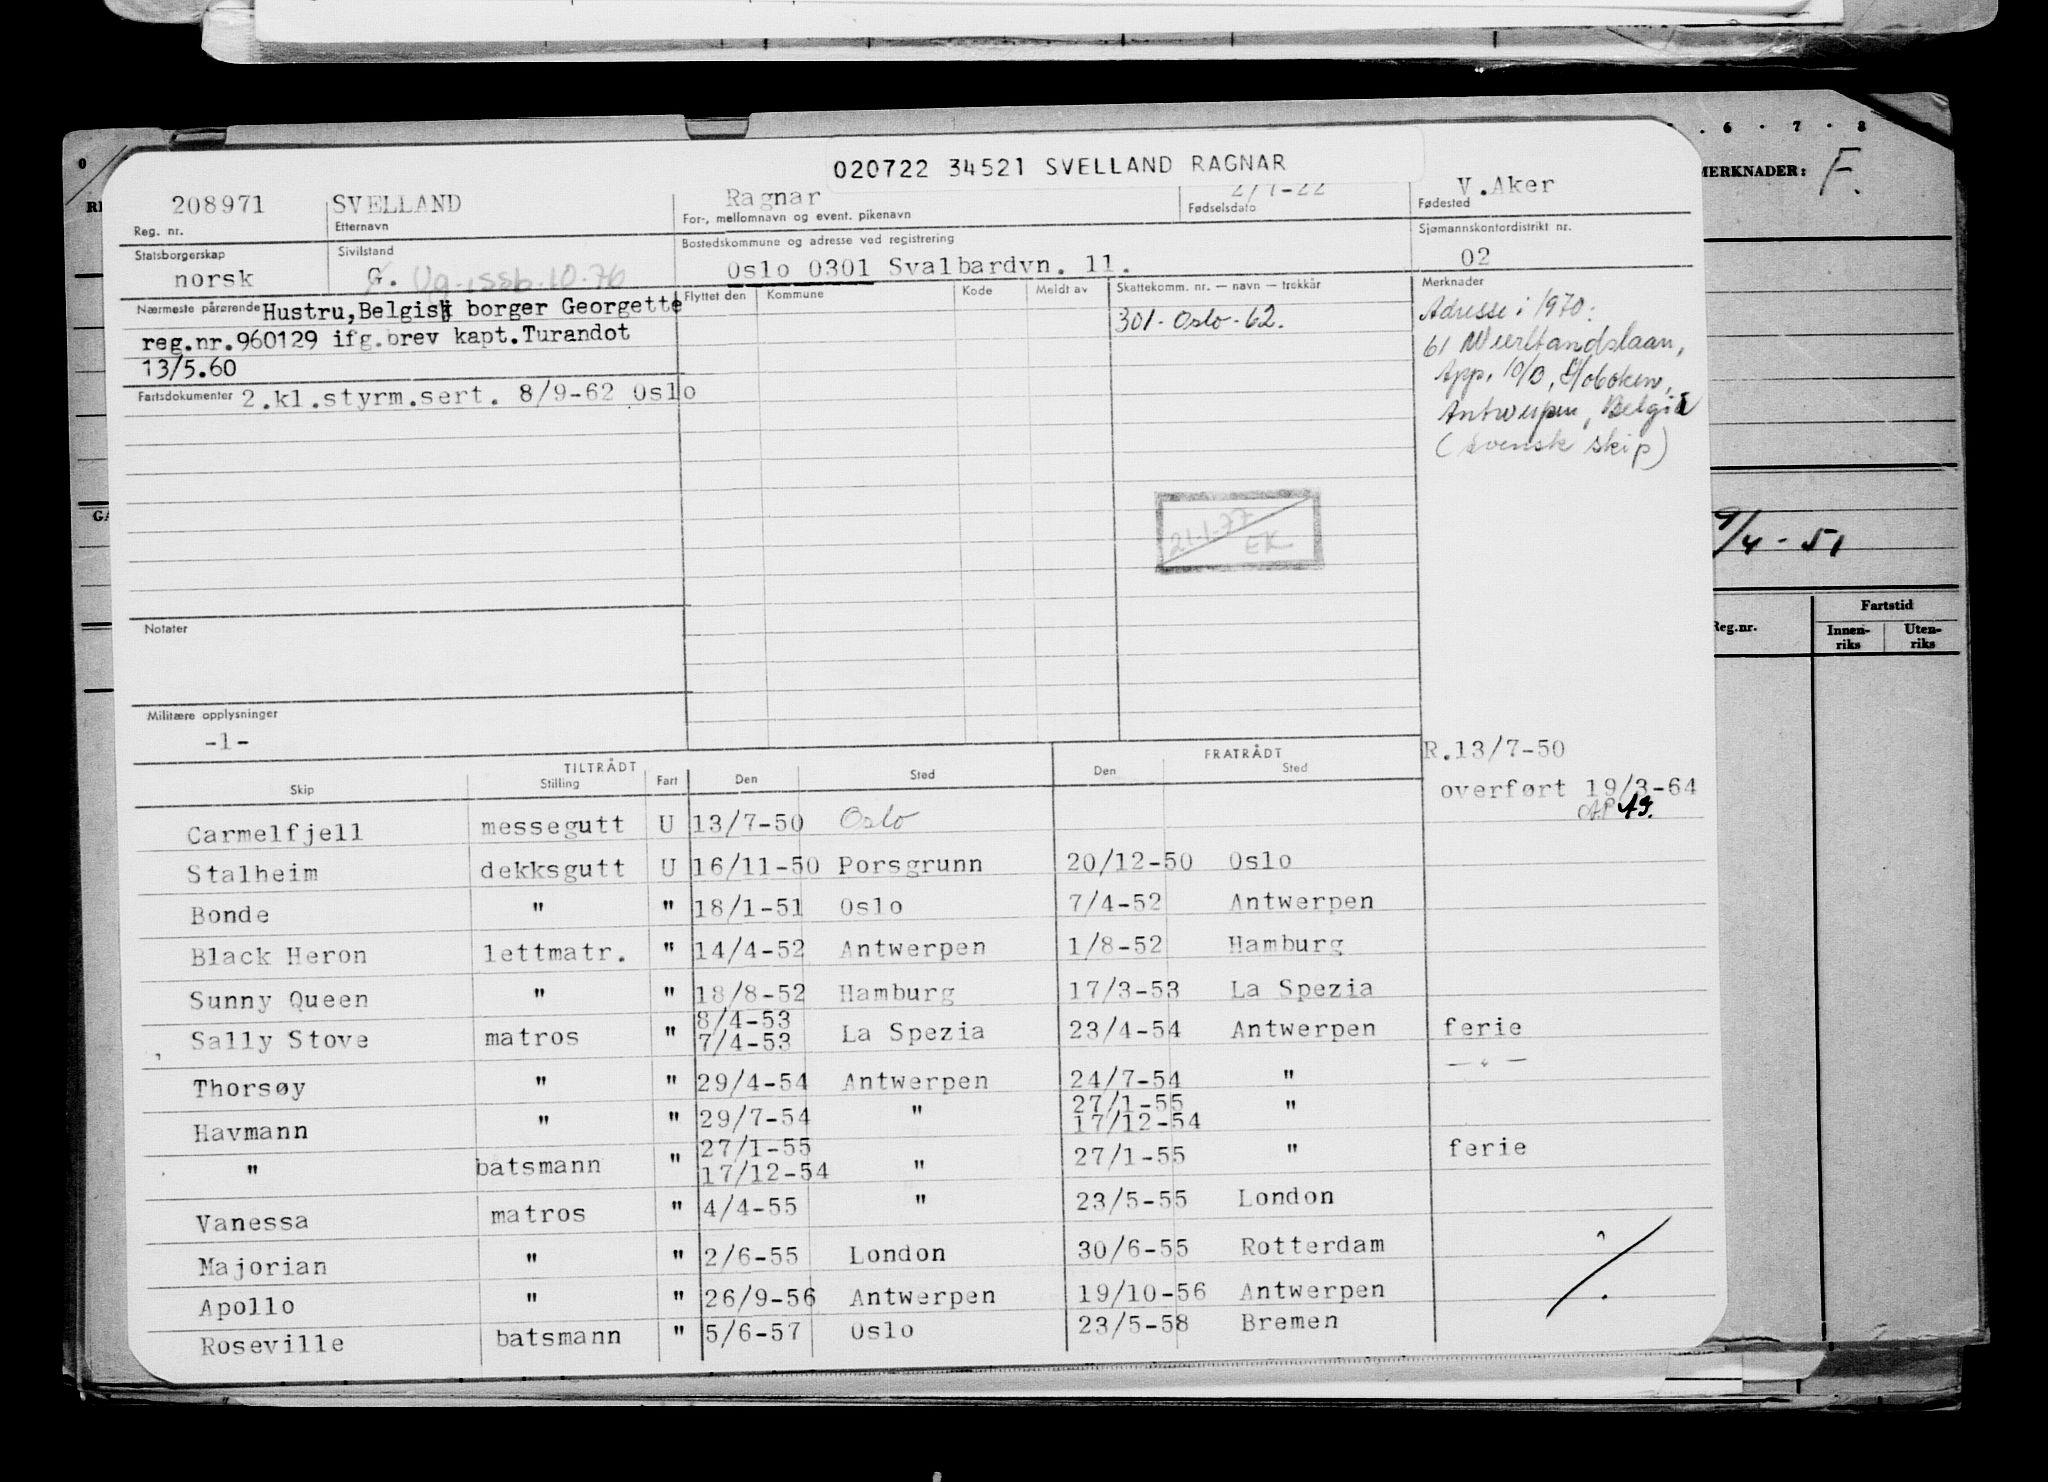 020722 34521 SVELLAND RAGNAR
208971 SVELLAND Ragnar 2/7-22 V.Aker
Reg. nr. Etternavn For-, mellomnavn og event. pikenavn Fødselsdato Fødested
Statsborgerskap Sivilstand Bostedskommune og adresse ved registrering Sjømannskontordistrikt nr.
norsk G. Ug. 10.76 Oslo 0301 Svalbardvn. 11. 02
Nærmeste pårørende Hustru, Belgisk borger Georgette
reg.nr.960129 ifg.brev kapt.Turandot
13/5.60
Fartsdokumenter 2.kl.styrm.sert. 8/9-62 Oslo
Flyttet den Kommune Kode Meldt av Skattekomm. nr. — navn — trekkår
301- Oslo-62.
Merknader
Adresse i 1970:
61
App. 10/D, Hoboken,
Antwerpen, Belgia
(svensk skip)
21.1.77
EK
Notater
Militære opplysninger
-1-
R.13/7-50
overført 19/3-64
TILTRÅDT FRATRÅDT
Skip Stilling Fart Den Sted Den Sted
Carmelfjell messegutt U 13/7-50 Oslo
Stalheim dekksgutt U 16/11-50 Porsgrunn 20/12-50 Oslo
Bonde " " 18/1-51 Oslo 7/4-52 Antwerpen
Black Heron lettmatr. " 14/4-52 Antwerpen 1/8-52 Hamburg
Sunny Queen " " 18/8-52 Hamburg 17/3-53 La Spezia
8/4-53
Sally Stove matros " 7/4-53 La Spezia 23/4-54 Antwerpen ferie
Thorsøy " " 29/4-54 Antwerpen 24/7-54 " — " —
27/1-55
Havmann " " 29/7-54 " 17/12-54 "
27/1-55
" batsmann " 17/12-54 " 27/1-55 " ferie
Vanessa matros " 4/4-55 " 23/5-55 London
Majorian " " 2/6-55 London 30/6-55 Rotterdam
Apollo " " 26/9-56 Antwerpen 19/10-56 Antwerpen
Roseville batsmann " 5/6-57 Oslo 23/5-58 Bremen
0
6 · 7 · 8
MERKNADER: F.
9/4-51
Fartstid
Reg.nr. Innen- Uten-
riks riks